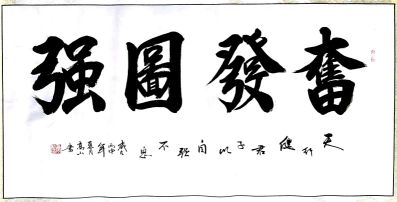 奮發圖强
天行健君子以自强不息